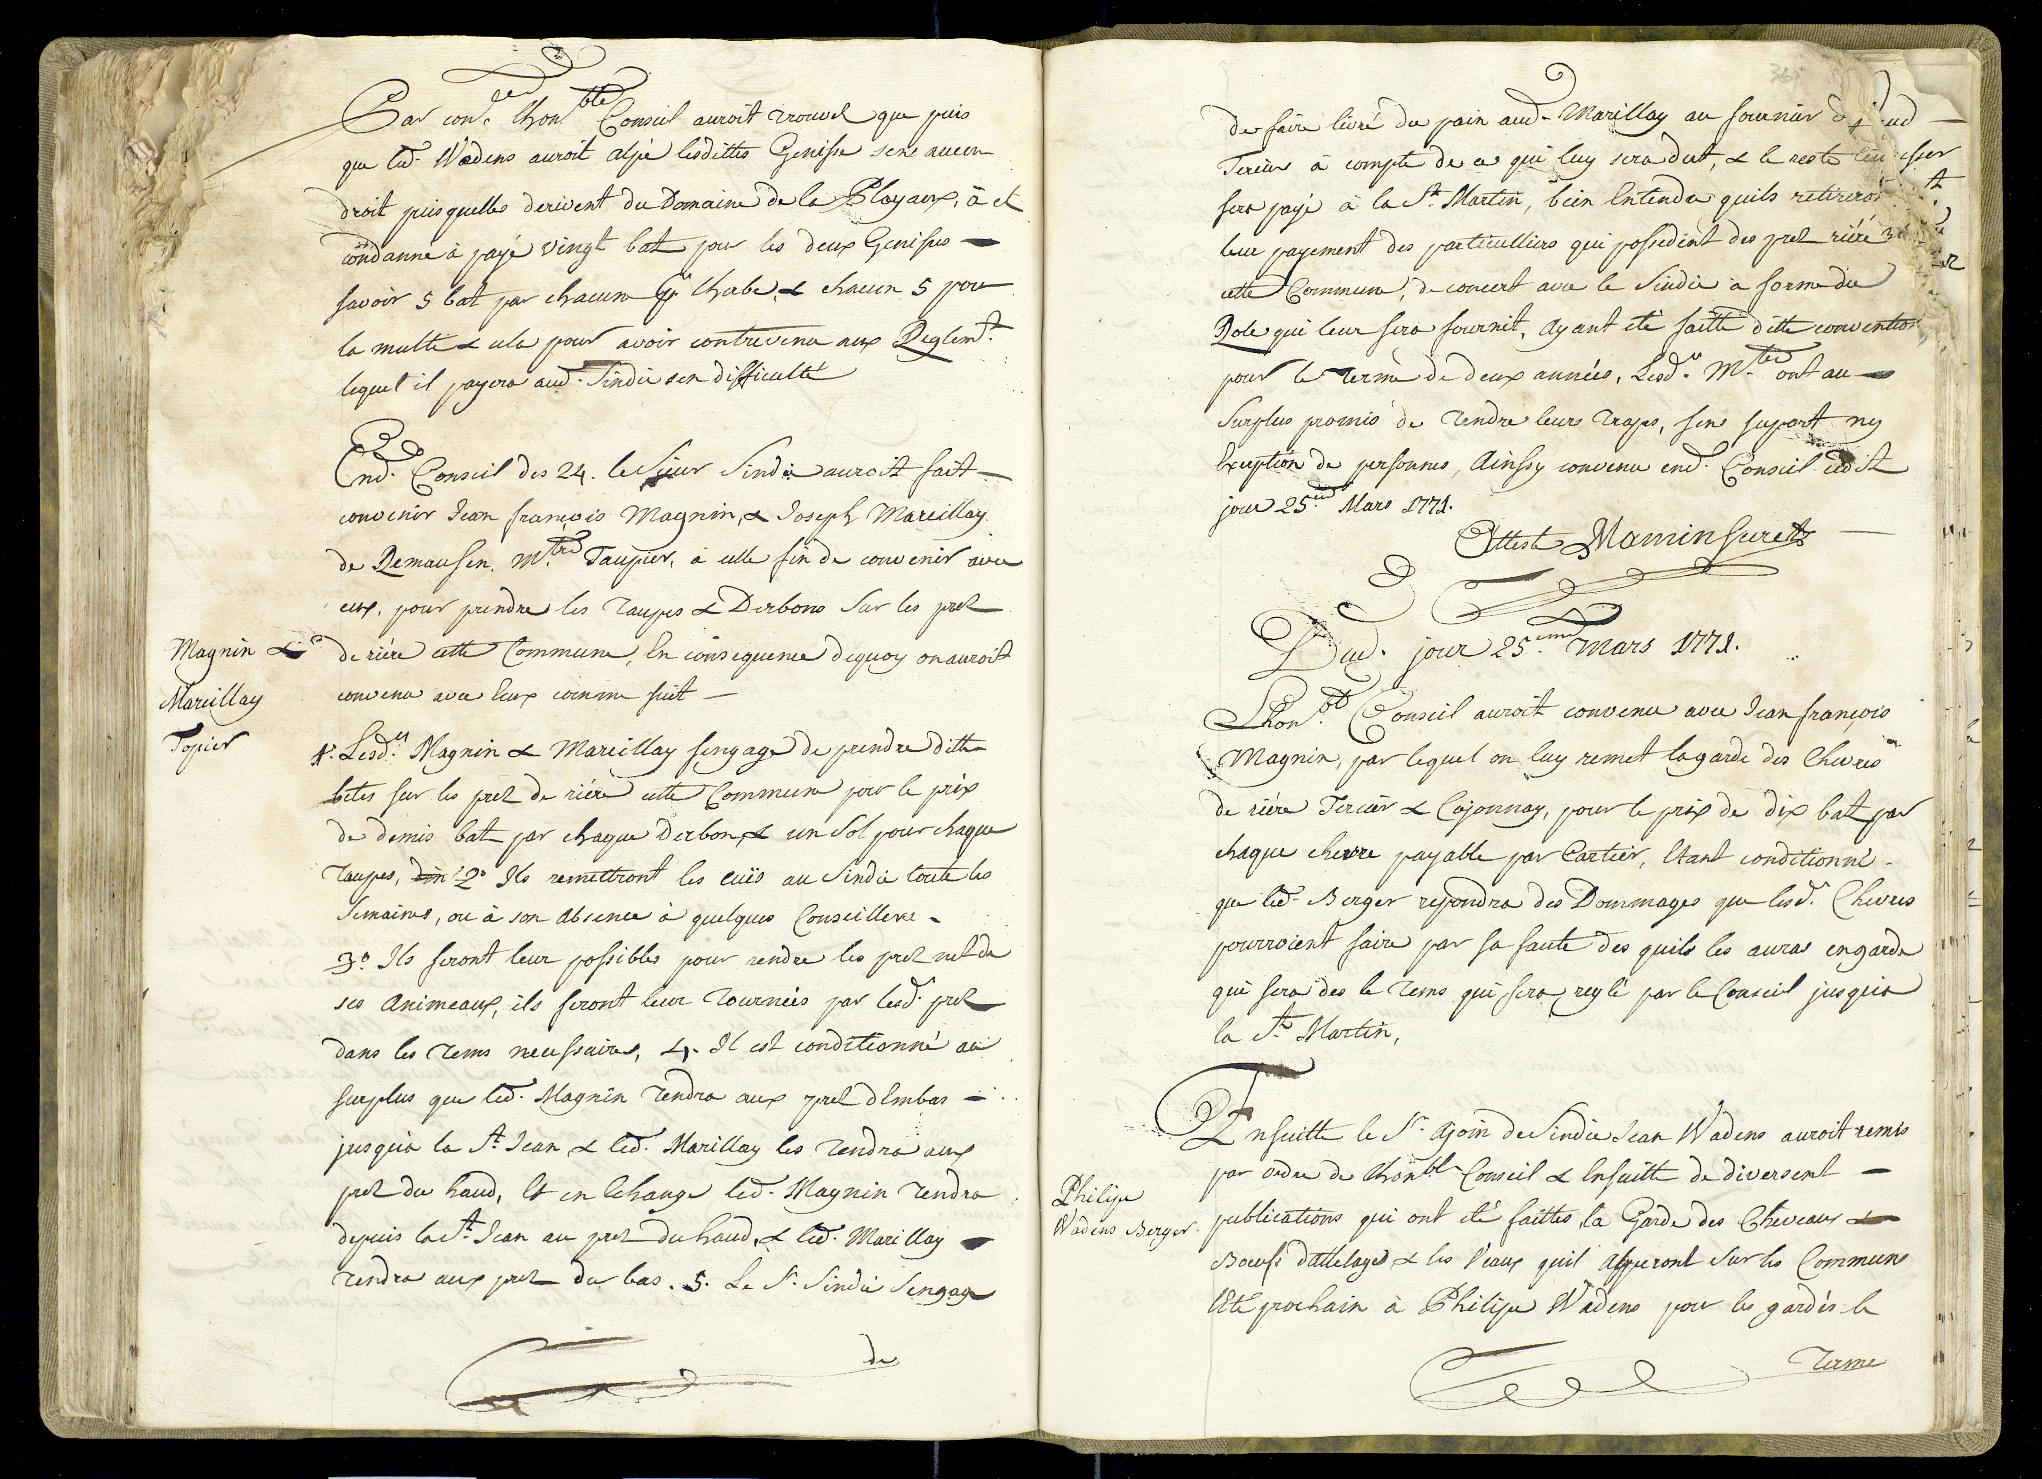 Par con.^e lhon.^ble Conseil auroit trouvé que puis
que led. Wadens auroit alpé lesdittes Genisse sens aucun
droit puisquelles derivent du Domaine de la Playaux, à et
condanne à payé vingt bat pour les deux Genisses
savoir 5 bat par chacune p^r lherbe, & chacun 5 pour
la multe & cela pour avoir contrevenu aux Reglem.^t
lequel il payera aud. Sindic sen difficulté
End. Conseil des 24. le Sieur Sindic auroit fait
convenir Jean françois Magnin, & Joseph Mareillay
de Remaufen, M.^tres Taupier, à celle fin de convenir avec
eux, pour prendre les Taupes & Derbons Sur les prez
Magnin &
Mareillay
Topier
de riére cette Commune, En consequence dequoy on auroit
convenu avec Eux comme suit
1.° Lesd.^ts Magnin & Mareillay sengage de prendre ditte
bétes sur les prez de riére cette Commune pour le prix
de demis bat par chaque Derbon, & un Sol pour chaque
Taupes, 2° Ils remettront les cuis au Sindic toute les
Semaines, ou à son absence à quelques Conseillers
3.° Ils feront leur possibles pour rendre les prez net de
ses Animeaux, ils feront leur Tournées par lesd. prez
dans les Tems necessaires, 4. Il est conditionné au
surplus que led. Magnin Tendra aux prez dEmbas
jusqua la S.^t Jean & led. Marillay les Tendra aux
prez du haud, Et en Echange led. Magnin Tendra
depuis la S.^t Jean au prez du haud, & led. Marillay
Tendra aux prez du bas. 5. Le S.^r Sindic Sengage
de
de faire livré du pain aud. Marillay au fournier
Tercier à compte de ce qui luy sera dut, & le reste
sera payé à la S.^t Martin, bien Entendu quils retireront
leur payement des particulliers qui possedent des prez riére
cette Commune, de concert avec le Sindic à forme du
Role qui leur sera fournit, Ayant eté faitte ditte convention
pour le Terme de deux années, Lesd.^ts M.^tres ont au
Surplus promis de Tendre leurs Trapes, sens suport ny
Exception de personnes, Ainssy convenu end. Conseil cedit
jour 25.^me Mars 1771.
Atteste Mamin Secret^r
Dud. jour 25.^eme Mars 1771.
Lhon.^ble Conseil auroit convenu avec Jean françois
Magnin, par lequel on luy remet la garde des Chevres
de riére Tercier & Cojonnay, pour le prix de dix bat par
chaque chevre payable par Cartier, Etant conditionné
que led. Berger repondra des Dommages que lesd. Chevres
pourroient faire par sa faute des quils les auras en garde
qui sera des le Tems qui sera reglé par le Conseil jusqua
la S.^t Martin,
Ensuitte le S.^r Ajoin de Sindic Jean Wadens auroit remis
par ordre de lhon^ble Conseil & Ensuitte de diversent
Philipe
Wadens Berger.
publications qui ont eté faittes, la Garde des Chevaux &
Boeufs dattelages & les Veaux quil alperont Sur les Commune
lEté prochain à Philipe Wadens pour les gardés le
Terme